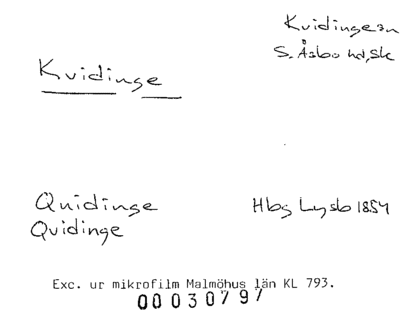 Kvidinge sn
S. Åsbo hd, Sk
Kvidinge
Quidinge
Hbg Lysb 1854
Qvidinge
Exc. ur mikrofilm Malmöhus län KL 793.
00030797